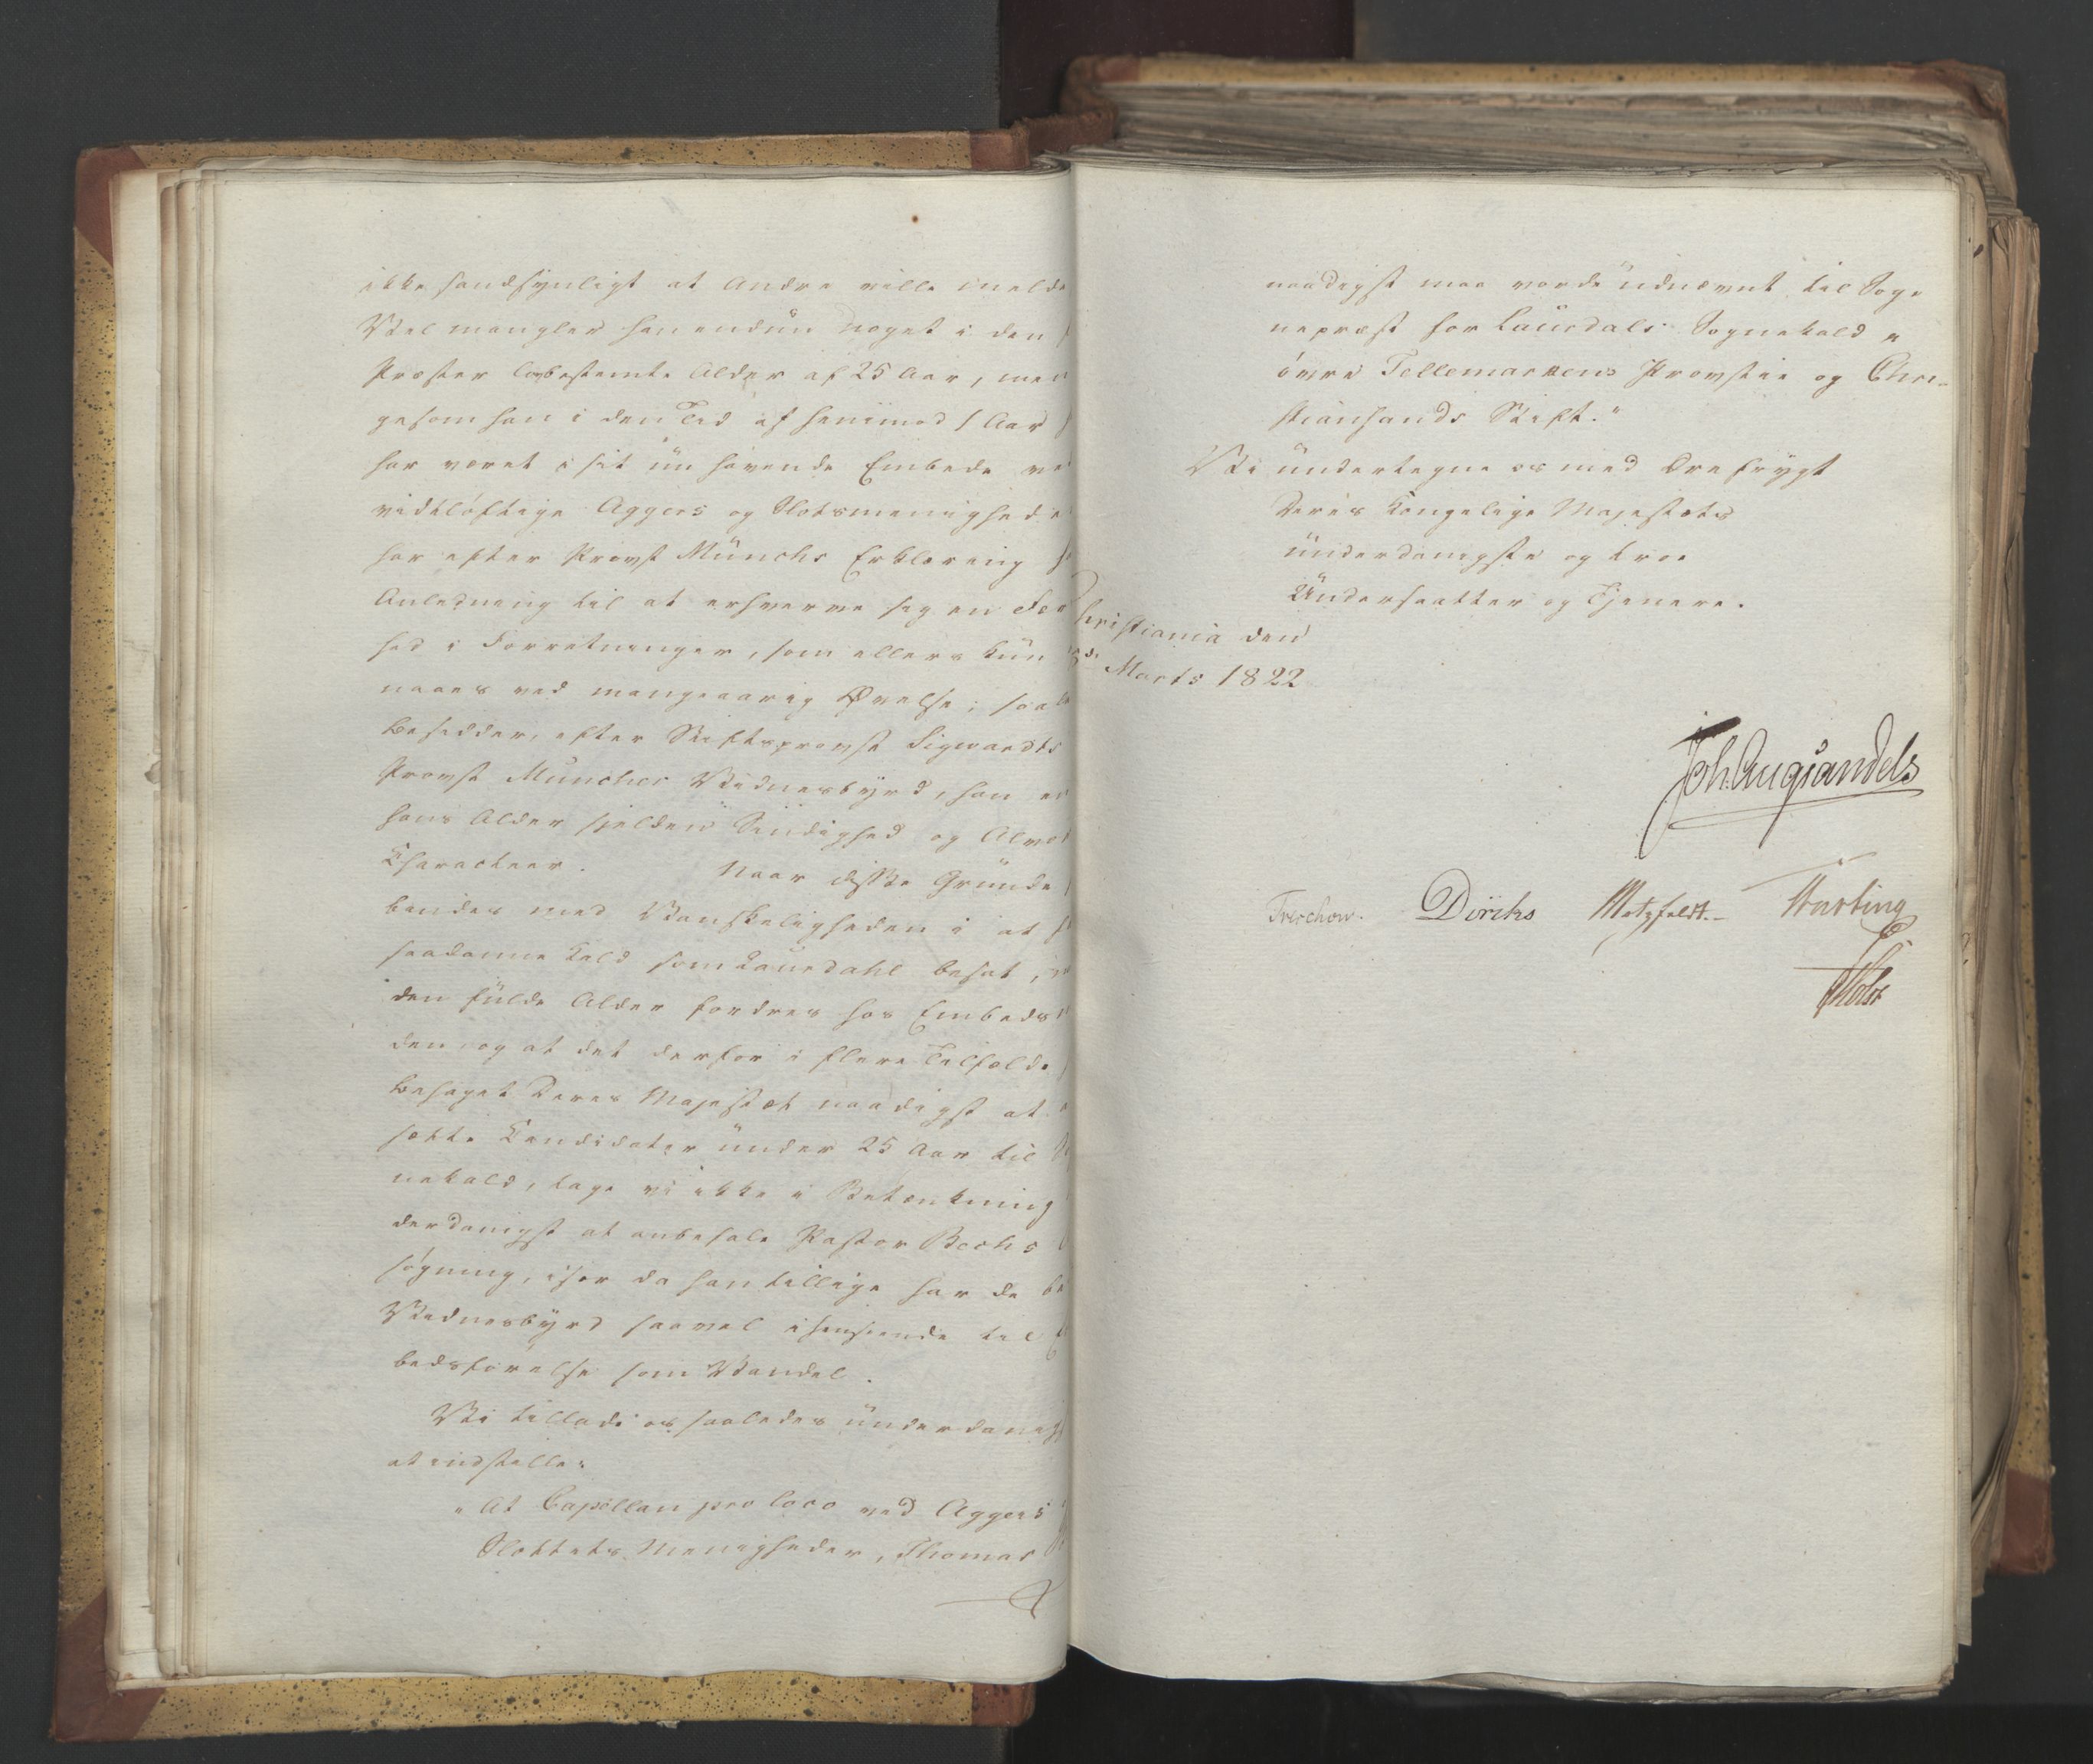 ikke sandsynligt at Andre ville melde
Vel mangler han endnu noget i den
Præster lovbestemte Alder af 25 Aar, men
gesom han i den Tid af henimod 1 Aar
har været i sit nu havende Embede ve
vidtløftige Aggers og Slotsmenighede
har efter Provst Münchs Erklæring
Anledning til at erhverve sig en Fær
hed i Forretninger, som ellers kun
naaes ved mangeaarig Øvelse; saa
besidder, efter Stiftsprovst Sigwardts
Provst Münches Vidnesbyrd, han en
hans Alder sjelden Stadighed og Alvor
Characteer. Naar disse Grunde
bindes med Vanskeligheden i at
saadanne Kald som Laurdahl besat,
den fulde Alder fordres hos Embeds
den og at det derfor i flere Tilfælde
behaget Deres Majestæt naadigst at
sætte Candidater under 25 Aar til
nekald, tage vi ikke i Betænkning
derdanigst at anbefale Pastor Bechs
søgning, især da han tillige har de be
Vidnesbyrd saavel ihenseende til
bedsførelse som Vandel.
Vi tillade os saaledes underdanigst
at indstille:
"At Capellan pro loco ved Aggers
Slottets Menigheder, Thomas
naadigst maa vorde udnævnt til Sog
nepræst for Laurdals Sognekald i
øvre Tellemarkens Provstie og Chri-
stiansands Stift."
Vi undertegne os med Ærefrygt
Deres Kongelige Majestæts
underdanigste og troe
Undersaatter og Tjenere.
Christiania den
Marts 1822
Joh. Aug Sandels
Treschow. Diriks Motzfeldt. Krefting
Holst